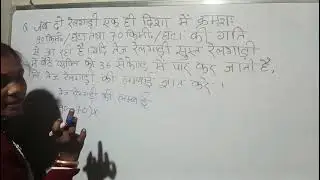 Q जब दो रेलगाड़ी एक ही दिशा में क्रमशः
90 किमी/घंटा तथा 70 किमी/घंटा की गति
से जा रही है। यदि तेज रेलगाड़ी सुस्त रेलगाड़ी
में बैठे व्यक्ति को 36 सेकेण्ड में पार कर जाती है,
तो तेज रेलगाड़ी की लम्बाई ज्ञात करें।
तेज रेलगाड़ी की लम्बाई